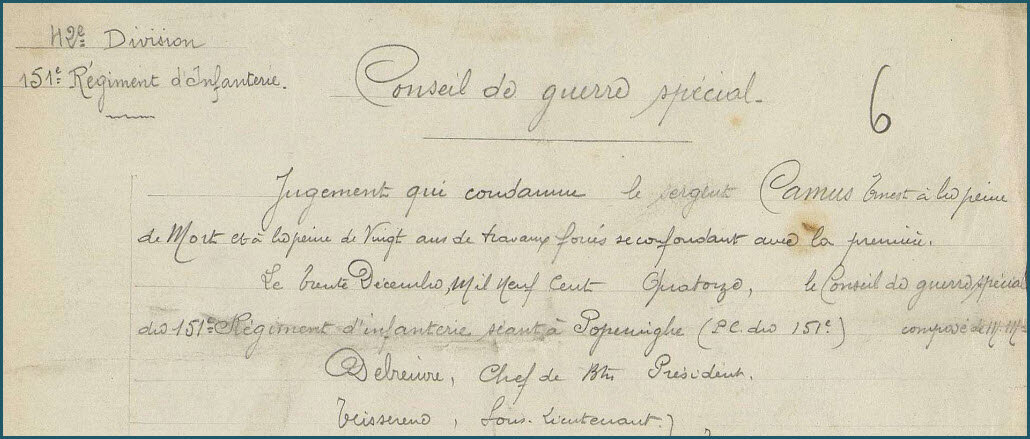 42e Division
151e Régiment d'Infanterie.
Conseil de guerre spécial.
6
Jugement qui condamne le sergent Camus Ernest à la peine
de Mort et à la peine de Vingt ans de travaux forcés se confondant avec la première.
Le trente Décembre, Mil Neuf Cent Quatorze, le Conseil de guerre spécial
du 151e Régiment d'infanterie séant à Poperinghe (P.C. du 151e) composé de M.M.
Chef de Btn Président.
Sous-Lieutenant